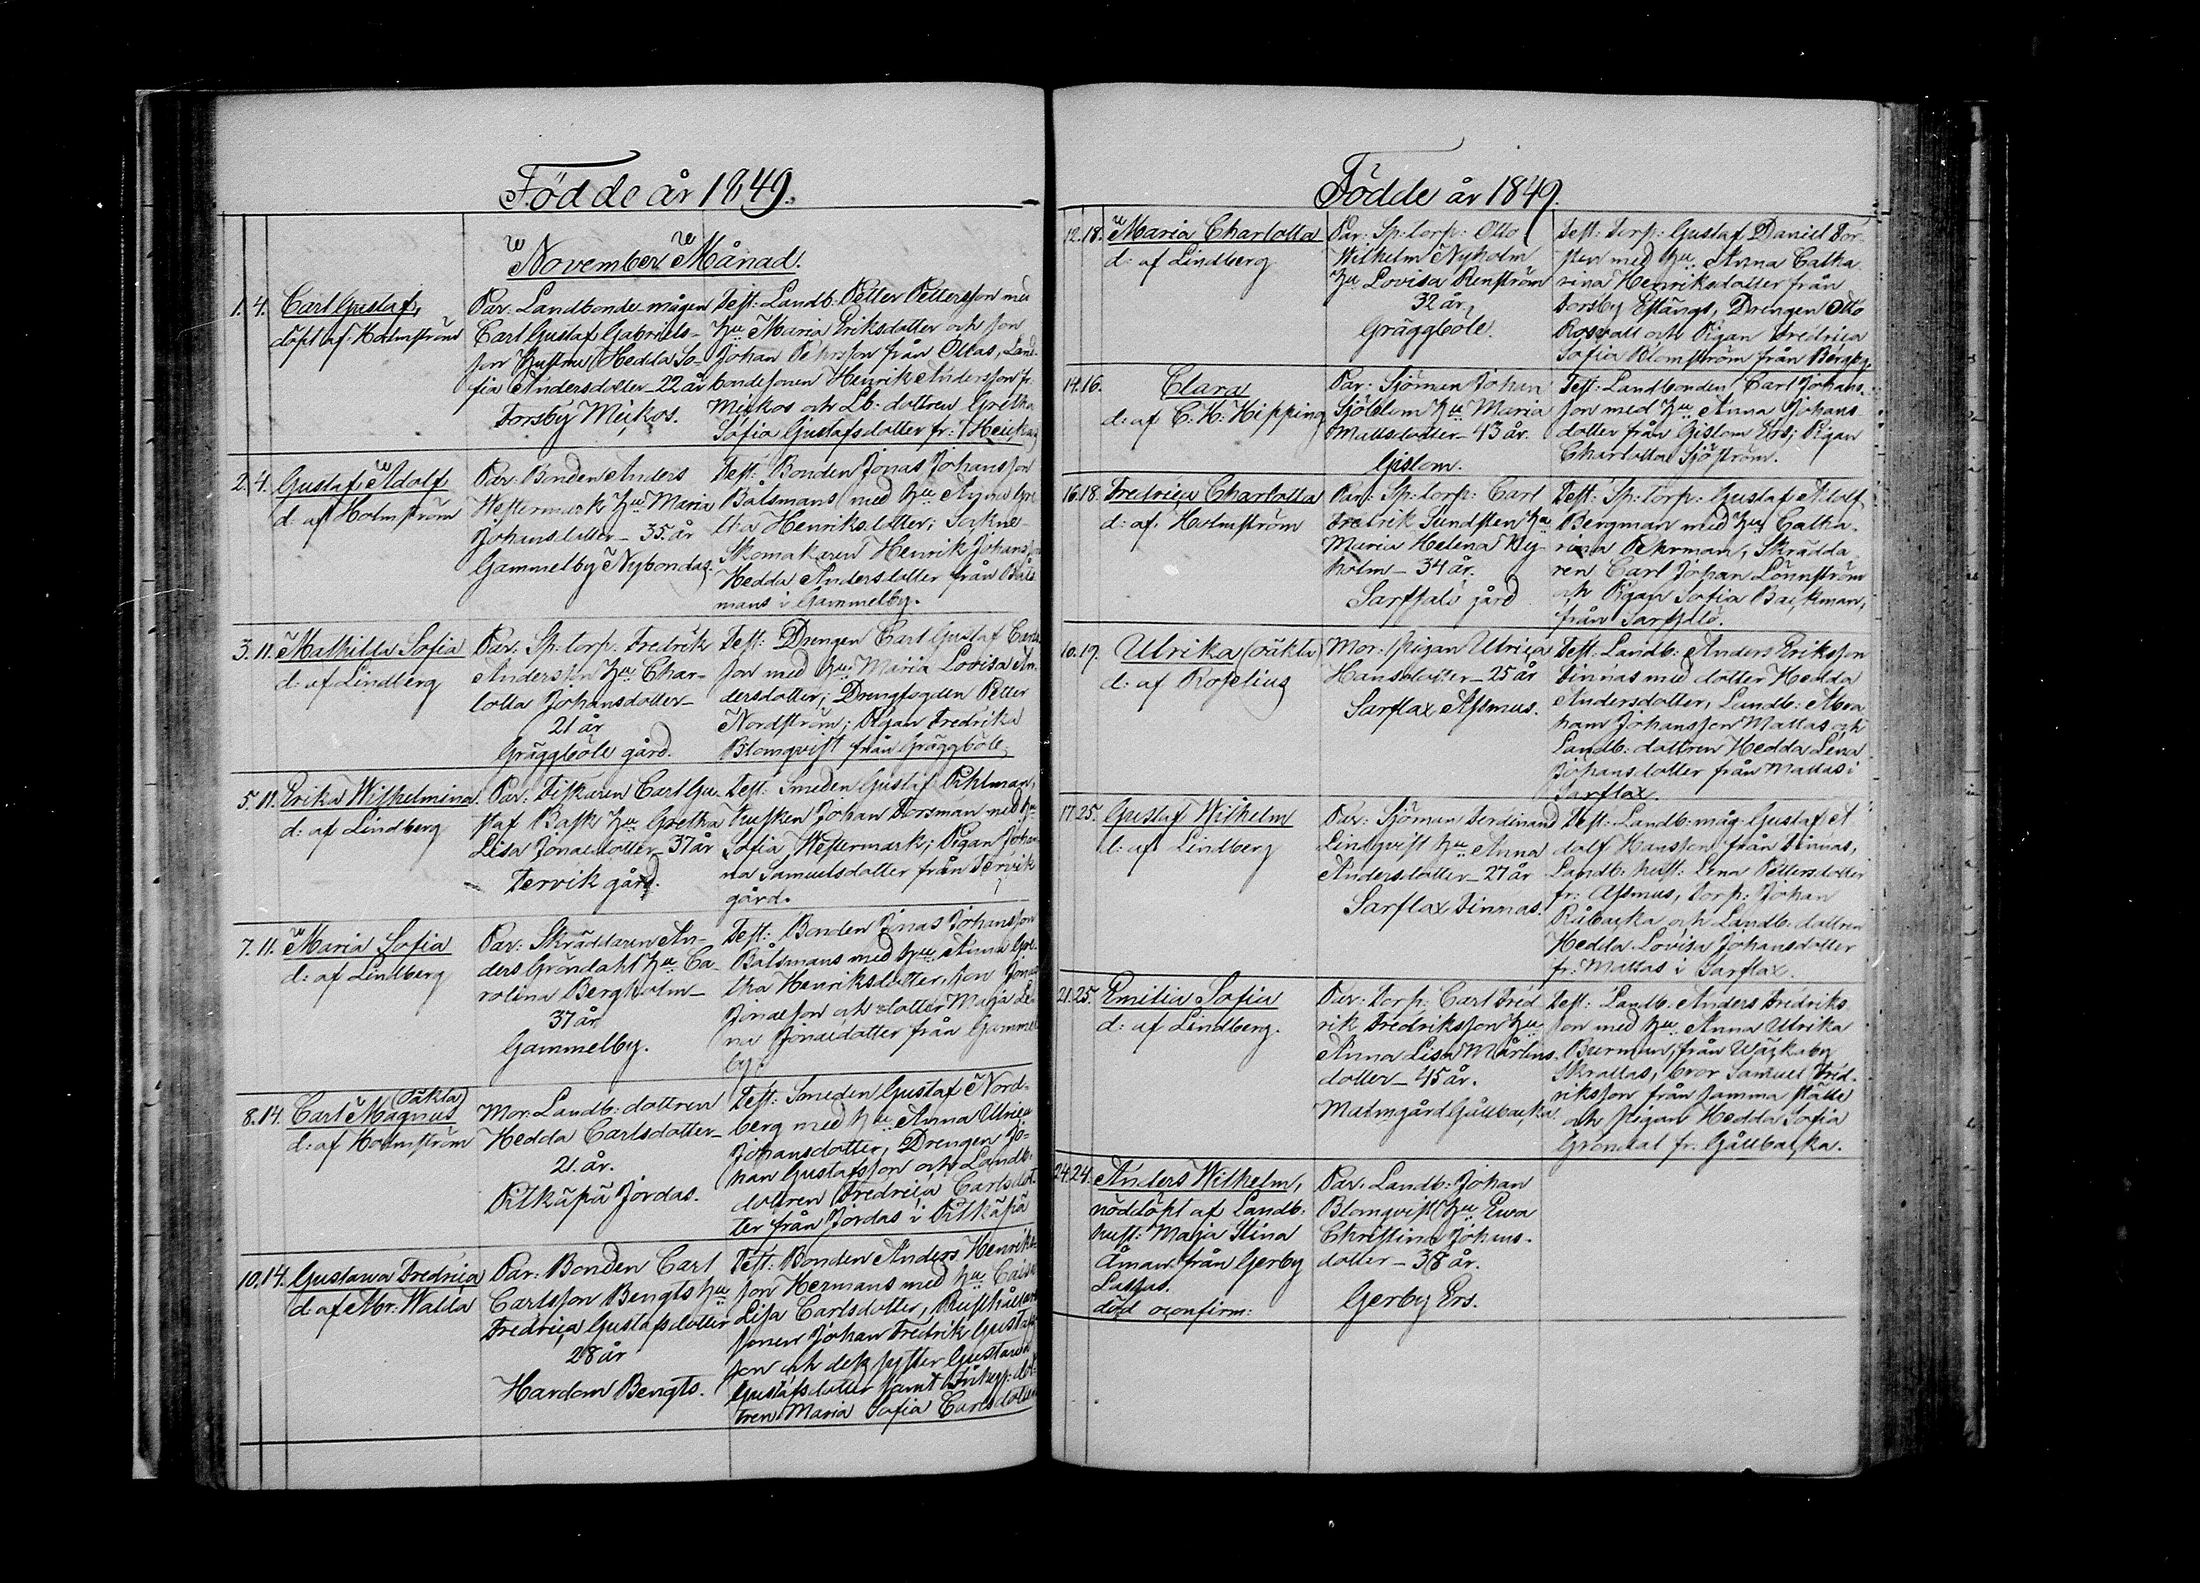 Födde år 1849.
November Månad.
1. 4. Carl Gustaf,
döpt af Holmström
Par. Landbonde-mågen
Carl Gustaf Gabriels-
son Hustru Hedda So-
fia Andersdotter 22 år
Forsby Mickos.
Test: Landb. Petter Pettersson med
Hu Maria Eriksdotter och son
Johan Pehrsson från Ollas, Land-
bondesonen Henrik Andersson fr.
Mickos och Lb: dottren Gretha
Sofia Gustafsdotter fr:
2. 4. Gustaf Adolf
d: af Holmström
Par. Bonden Anders
Westermark Hu Maria
Johansdotter - 35 år
Gammelby Nybondas.
Test: Bonden Jonas Johansson
Båtsmans med Hu Anna Gre-
tha Henriksdotter; Sockne-
Skomakaren Henrik Johansson
Hedda Andersdotter från Båts-
mans i Gammelby.
3. 11. Mathilda Sofia
d: af Lindberg
Par. Sp: torp. Fredrik
Andersson Hu Char-
lotta Johansdotter -
21 år
Gräggböle gård.
Test: Drengen Carl Gustaf Carls-
son med Hu: Maria Lovisa An-
dersdotter; Drengfogden Petter
Nordström; Pigan Fredrika
Blomqvist från Gräggböle.
5. 11. Erika Wilhelmina
d: af Lindberg
Par: Fiskaren Carl Gu-
staf Bask Hu Gretha
Lisa Jonaedotter - 37 år
Tervik gård.
Test: Smeden Gustaf Pihlman,
Kusken Johan Forsman med Hu
Sofia Westermark; Pigan Johan-
na Samuelsdotter från Tervik
gård.
7. 11. Maria Sofia
d: af Lindberg
Par: Skräddaren An-
ders Gröndahl Hu Ca-
rolina Bergholm -
37 år
Gammelby.
Test: Bonden Jonas Johansson
Båtsmans med Hu Anna Gre-
tha Henriksdotter, son Jonas
Jonaeson och dotter Maja Le-
na Jonaedotter från Gammel-
by.
8. 14. Carl Magnus (oäkta)
d: af Holmström
Mor: Landb: dottren
Hedda Carlsdotter -
21 år.
Pitkäpä Jordas.
Test: Smeden Gustaf Nord-
berg med Hu Anna Ulrica
Johansdotter, Drengen Jo-
han Gustafsson och Landb:
dottren Fredrica Carlsdot-
ter från Jordas i Pitkäpä
10. 14. Gustava Fredrica
d: af Mr: Walda
Par: Bonden Carl
Carlsson Bengts Hu
Fredrica Gustafsdotter
28 år
Hardom Bengts.
Test: Bonden Anders Henriks-
son Hermans med Hu Caisa
Lisa Carlsdotter, Rusthållare
sonen Johan Fredrik Gustafs-
son och dess syster Gustava
Gustafsdotter samt dot-
tren Maria Sofia Carlsdotter
Födde år 1849.
12. 18. Maria Charlotta
d: af Lindberg
Par: Sp: torp: Otto
Wilhelm Nyholm
Hu Lovisa Renström
32 år,
Gräggböle.
Test: Torp: Gustaf Daniel For-
sten med Hu. Anna Catha-
rina Henriksdotter från
Forsby Eklängt, Drengen Otto
Rosvall och Pigan Fredrica
Sofia Blomström från Bergby.
14. 16. Clara
d: af C. H. Hipping
Par: Sjöman Johan
Sjöblom Hu Maria
Mattsdotter - 43 år.
Gislom.
Test: Landbonden Carl Johans-
son med Hu Anna Johans-
dotter från Gislom Ers; Pigan
Charlotta Sjöström.
16. 18. Fredrica Charlotta
d: af Holmström
Par: Sp: torp: Carl
Fredrik Sundsten Hu
Maria Helena Ny-
holm - 34 år.
Sarfsalö gård
Test: Sp: torp: Gustaf Adolf
Bergman med Hu Catha-
rina Pehrman, Skrädda-
ren Carl Johan Lönnström
och Pigan Sofia Backman,
från Sarfsalö.
10. 17. Ulrika (oäkta)
d: af Roselius
Mor: Pigan Ulrica
Hansdotter - 25 år
Sarflax Assmus.
Test: Landb: Anders Eriksson
Finnas med dotter Hedda
Andersdotter, Landb: Abra-
ham Johansson Mattas och
Landb: dottren Hedda Lena
Johansdotter från Mattas i
Sarflax.
17. 25. Gustaf Wilhelm
d: af Lindberg
Par: Sjöman Ferdinand
Lindqvist Hu Anna
Andersdotter - 27 år
Sarflax Finnas.
Test: Landb: måg Gustaf A-
dolf Hansson från Finnas,
Landb: hust: Lena Pettersdotter
fr: Assmus, Torp: Johan
Råbacka och Landb: dottren
Hedda Lovisa Johansdotter
fr: Mattas i Sarflax.
21. 25. Emilia Sofia
d: af Lindberg.
Par: Torp: Carl Fred-
rik Fredriksson Hu
Anna Lisa Mårtens-
dotter - 45 år.
Malmgård Gåltbacka.
Test: Landb: Anders Fredriks-
son med Hu Anna Ulrika
Burman, från Wäckaby
Skrallas, bror Samuel Fred-
riksson från samma ställe
och Pigan Hedda Sofia
Gröndal fr: Gåltbacka.
24. 24. Anders Wilhelm,
nöddöpt af Landb:
hust: Maja Stina
Åman från Gerby
Lassas.
död oconfirm:
Par: Landb: Johan
Blomqvist Hu Eva
Christina Johans-
dotter - 38 år.
Gerby Ers.